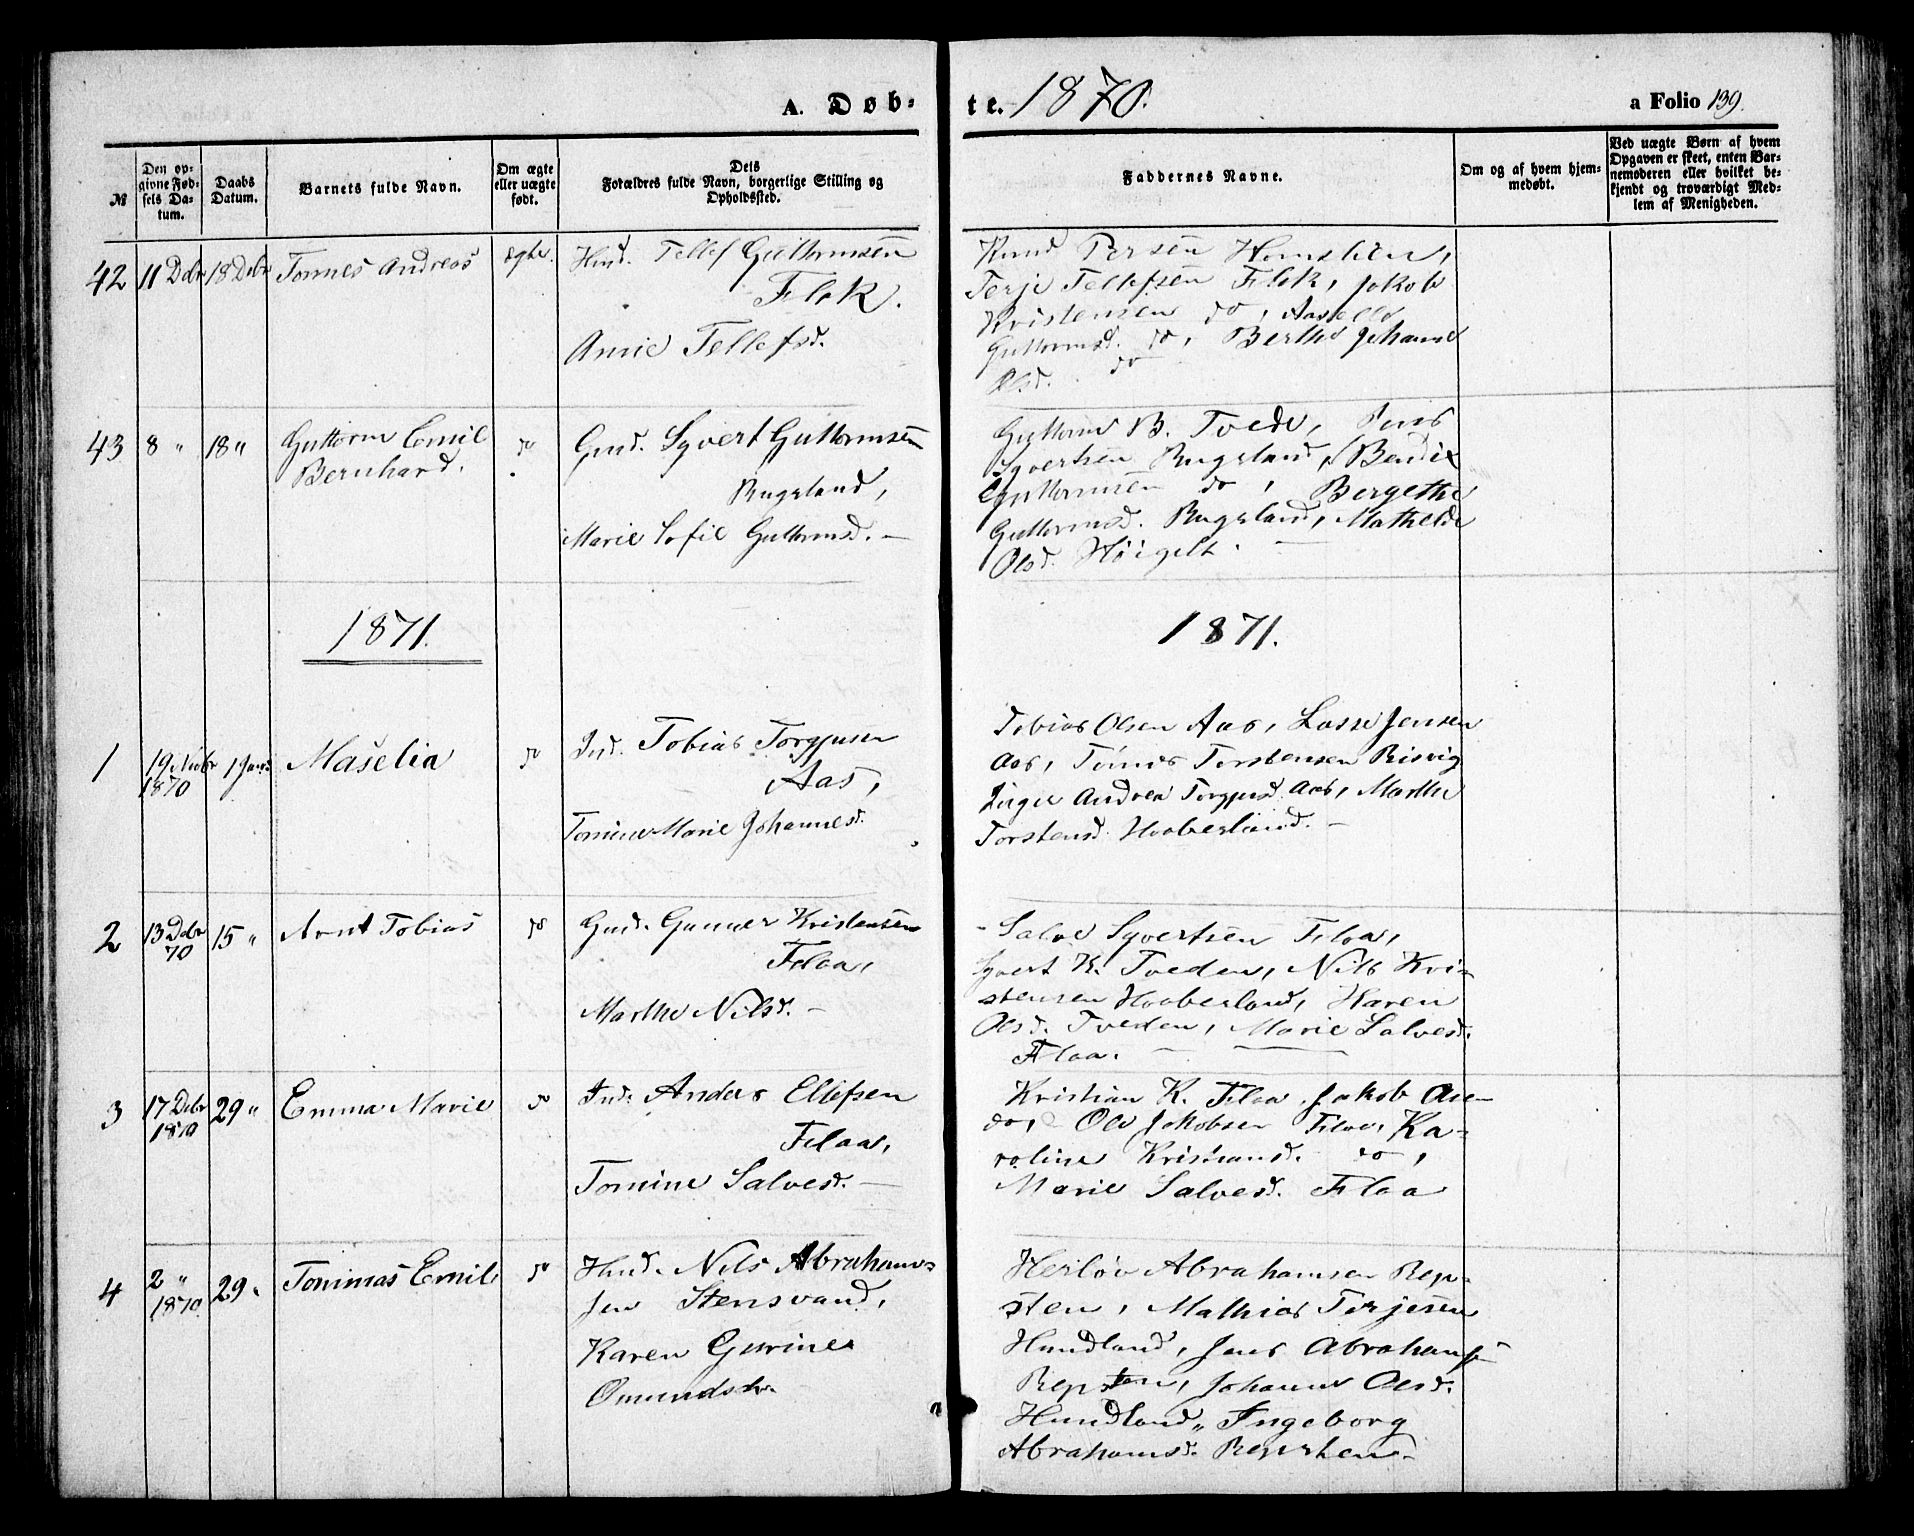 A. Døb-
te. 1870.
a Folio 139.
№
Den op-
givne Fød-
sels Da-
tum.
Daabs
Datum.
Barnets fulde Navn.
Om ægte
eller uægte
født.
Dets
Forældres fulde Navn, borgerlige Stilling og
Opholdssted.
Faddernes Navne.
Om og af hvem hjem-
medøbt.
Ved uægte Børn af hvem
Opgaven er skeet, enten Bar-
nemoderen eller hvilket be-
kjendt og troværdigt Med-
lem af Menigheden.
42 11 Debr 18 Debr Tomes Andreas ægte. Husmd. Tellef Guttormsen
Flak.
Anne Tellefsd.
Knud Persen Homstien,
Terje Tellefsen Flak, Jakob
Kristensen do, Aasille
Guttormsd. do, Berthe Johanne
Olsd. do
43 8 " 18 " Guttorm Emil
Bernhard.
do
Gmd. Syvert Guttormsen
Rugsland,
Marie Sofie Guttormsd. –
Guttorm B. Tvede, Jens
Syvertsen Rugsland, Bendix
Guttormsen do, Bergethe
Guttormsd. Rugsland, Mathilde
Olsd. Höigilt. –
1871.
1871.
1 19 Novbr
1870
1 Janr. Maselia do Ind. Tobias Torgjusen
Aas,
Tomine Marie Johannesd.
Tobias Olsen Aas, Lasse Jensen
Aas, Tönnes Torstensen Risvig
Inger Andrea Torgjusd. Aas, Marthe
Torstensd. Haaberland. –
2 13 Debr
70
15 " Arnt Tobias do Gmd. Gunner Kristensen
Flaa,
Marthe Nilsd. –
Salve Syvertsen Flaa,
Syvert K. Tveden, Nils Kri-
stensen Haaberland, Karen
Olsd. Tveden, Marie Salvesd.
Flaa. –
3 17 Debr
1870
29 " Emma Marie do Ind. Anders Ellefsen
Flaa,
Tomine Salvesd. –
Kristian K. Flaa, Jakob
do, Ole Jakobsen Flaa, Ka-
roline Kristiansd. do,
Marie Salvesd. Flaa
4 2 "
1870.
29 " Tommas Emil do Husmd. Nils Abraham-
sen Stensvand,
Karen Gurine
Omundsdr.
Herløv Abrahamsen Rep-
sten, Mathias Terjesen
Hundland, Jens Abrahams.
Repsten, Johanne Olsd.
Hundland, Ingeborg
Abrahamsd. Repsten. –